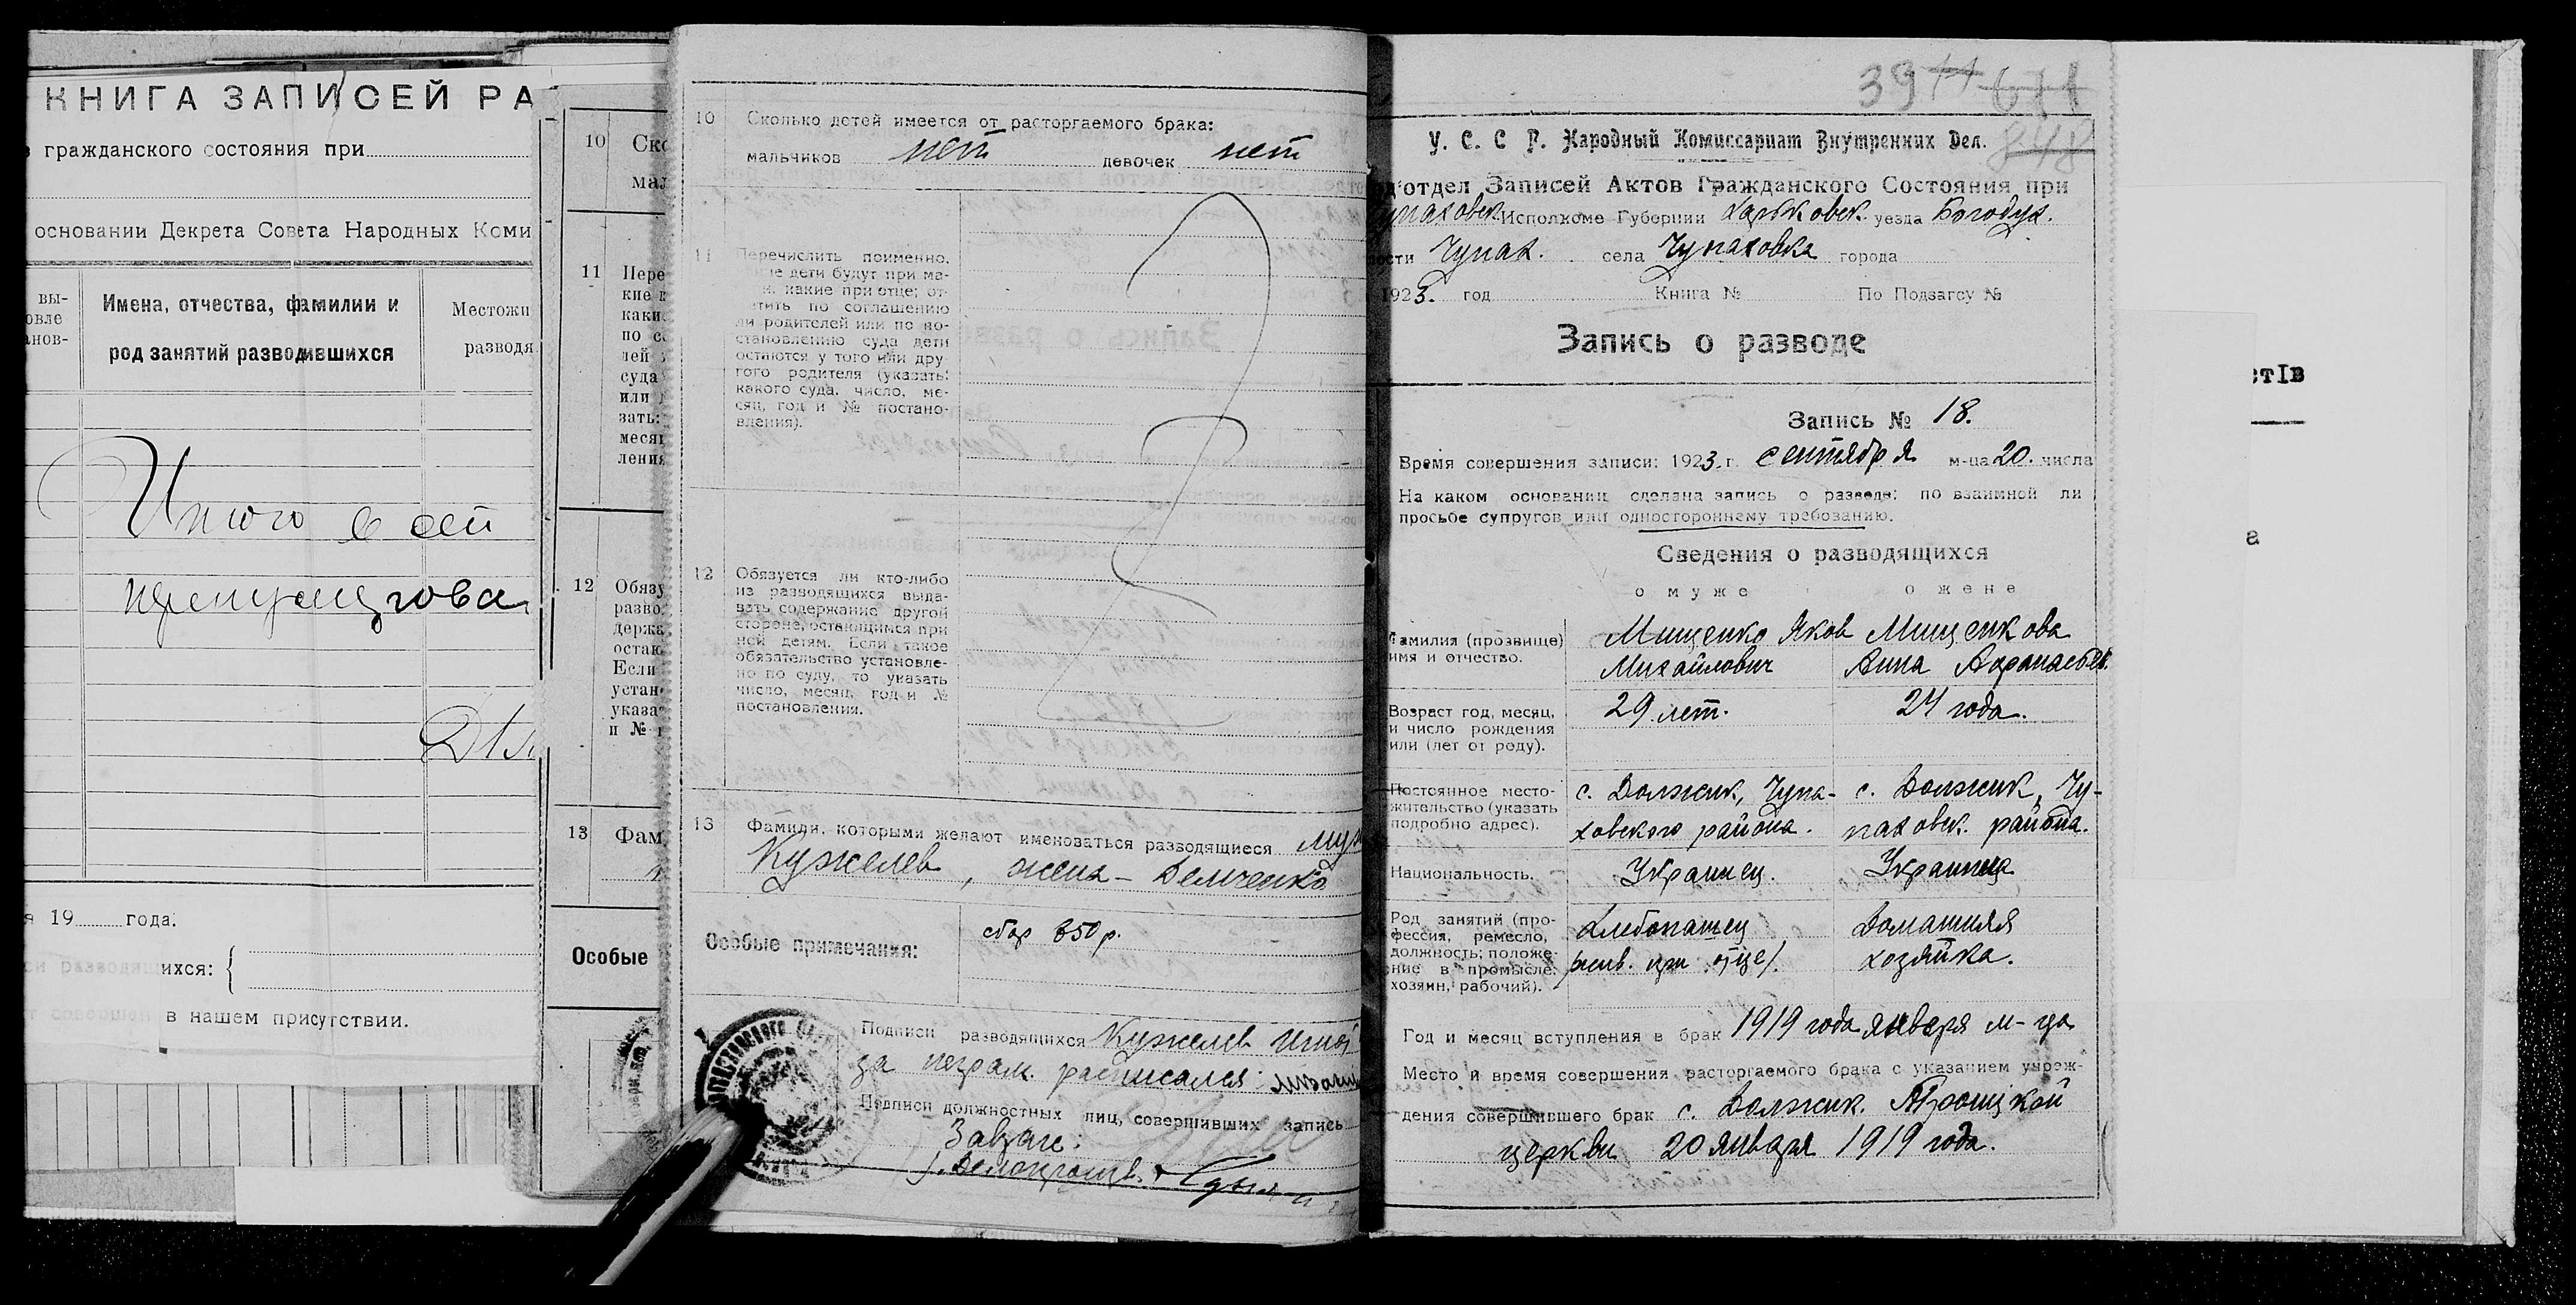 КНИГА ЗАПИСЕЙ РА
гражданского состояния при
основании Декрета Совета Народных Коми
вы-
овле
анов-
Имена, отчества, фамилии и
род занятий разводившихся
Местожи
разводя
Итого в сей
19 года.
ихся:
в нашем присутствии.
10 Ско
мал
11 Пере
кие
каки
по со
лей
суда
или
зать:
месяц
ления
12 Обязу
разво
держа
остаю
Если
устан
указа
и №
13 Фам
Особые
10 Сколько детей имеется от расторгаемого брака:
мальчиков нет девочек нет
11 Перечислить поименно,
кие дети будут при ма-
какие при отце; от-
тить по соглашению
ли родителей или по по-
становлению суда дети
остаются у того или дру-
гого родителя (указать:
какого суда, число, ме-
сяц, год и № постано-
вления).
12 Обязуется ли кто-либо
из разводящихся выда-
вать содержание другой
стороне, остающимся при
ней детям. Если такое
обязательство установле-
но по суду, то указать
число, месяц, год и №
постановления.
13 Фамилии, которыми желают именоваться разводящиеся муж
Кужелев, жена – Демченко
Особые примечания: сбор 350 р.
Подписи разводящихся Кужелев
за неграм. расписался:
Подписи должностных лиц, совершивших запись
Завзаг.
Делопроизв.
39
671
848
У. С. С. Р. Народный Комиссариат Внутренних Дел.
отдел Записей Актов Гражданского Состояния при
упаховск Исполкоме Губернии Харьковск. уезда Богодух.
ости Чупах. села Чупаховка города
1923. год Книга № По Подзагсу №
Запись о разводе
Запись № 18.
Время совершения записи: 1923. г. сентября м-ца 20. числа
На каком основании сделана запись о разводе: по взаимной ли
просьбе супругов или одностороннему требованию.
Сведения о разводящихся
о муже о жене
Фамилия (прозвище) имя и отчество. Мищенко Яков Михайлович Мищенкова Анна Афанасьев.
Возраст год, месяц, и число рождения или (лет от роду). 29 лет. 24 года.
Постоянное место-жительство (указать подробно адрес). с. Должик, Чупа-ховского района. с. Должик, Чу-паховск. района.
Национальность. Украинец. Украинца
Род занятий (про-фессия, ремесло, должность; положе-ние в промысле: хозяин, рабочий). Хлебопашец /жив. при отце/. Домашняя хозяйка.
Год и месяц вступления в брак 1919 года января м-ца
Место и время совершения расторгаемого брака с указанием учреж-
дения совершившего брак с. Должик. Троицкой
церкви 20 января 1919 года.
стів
а